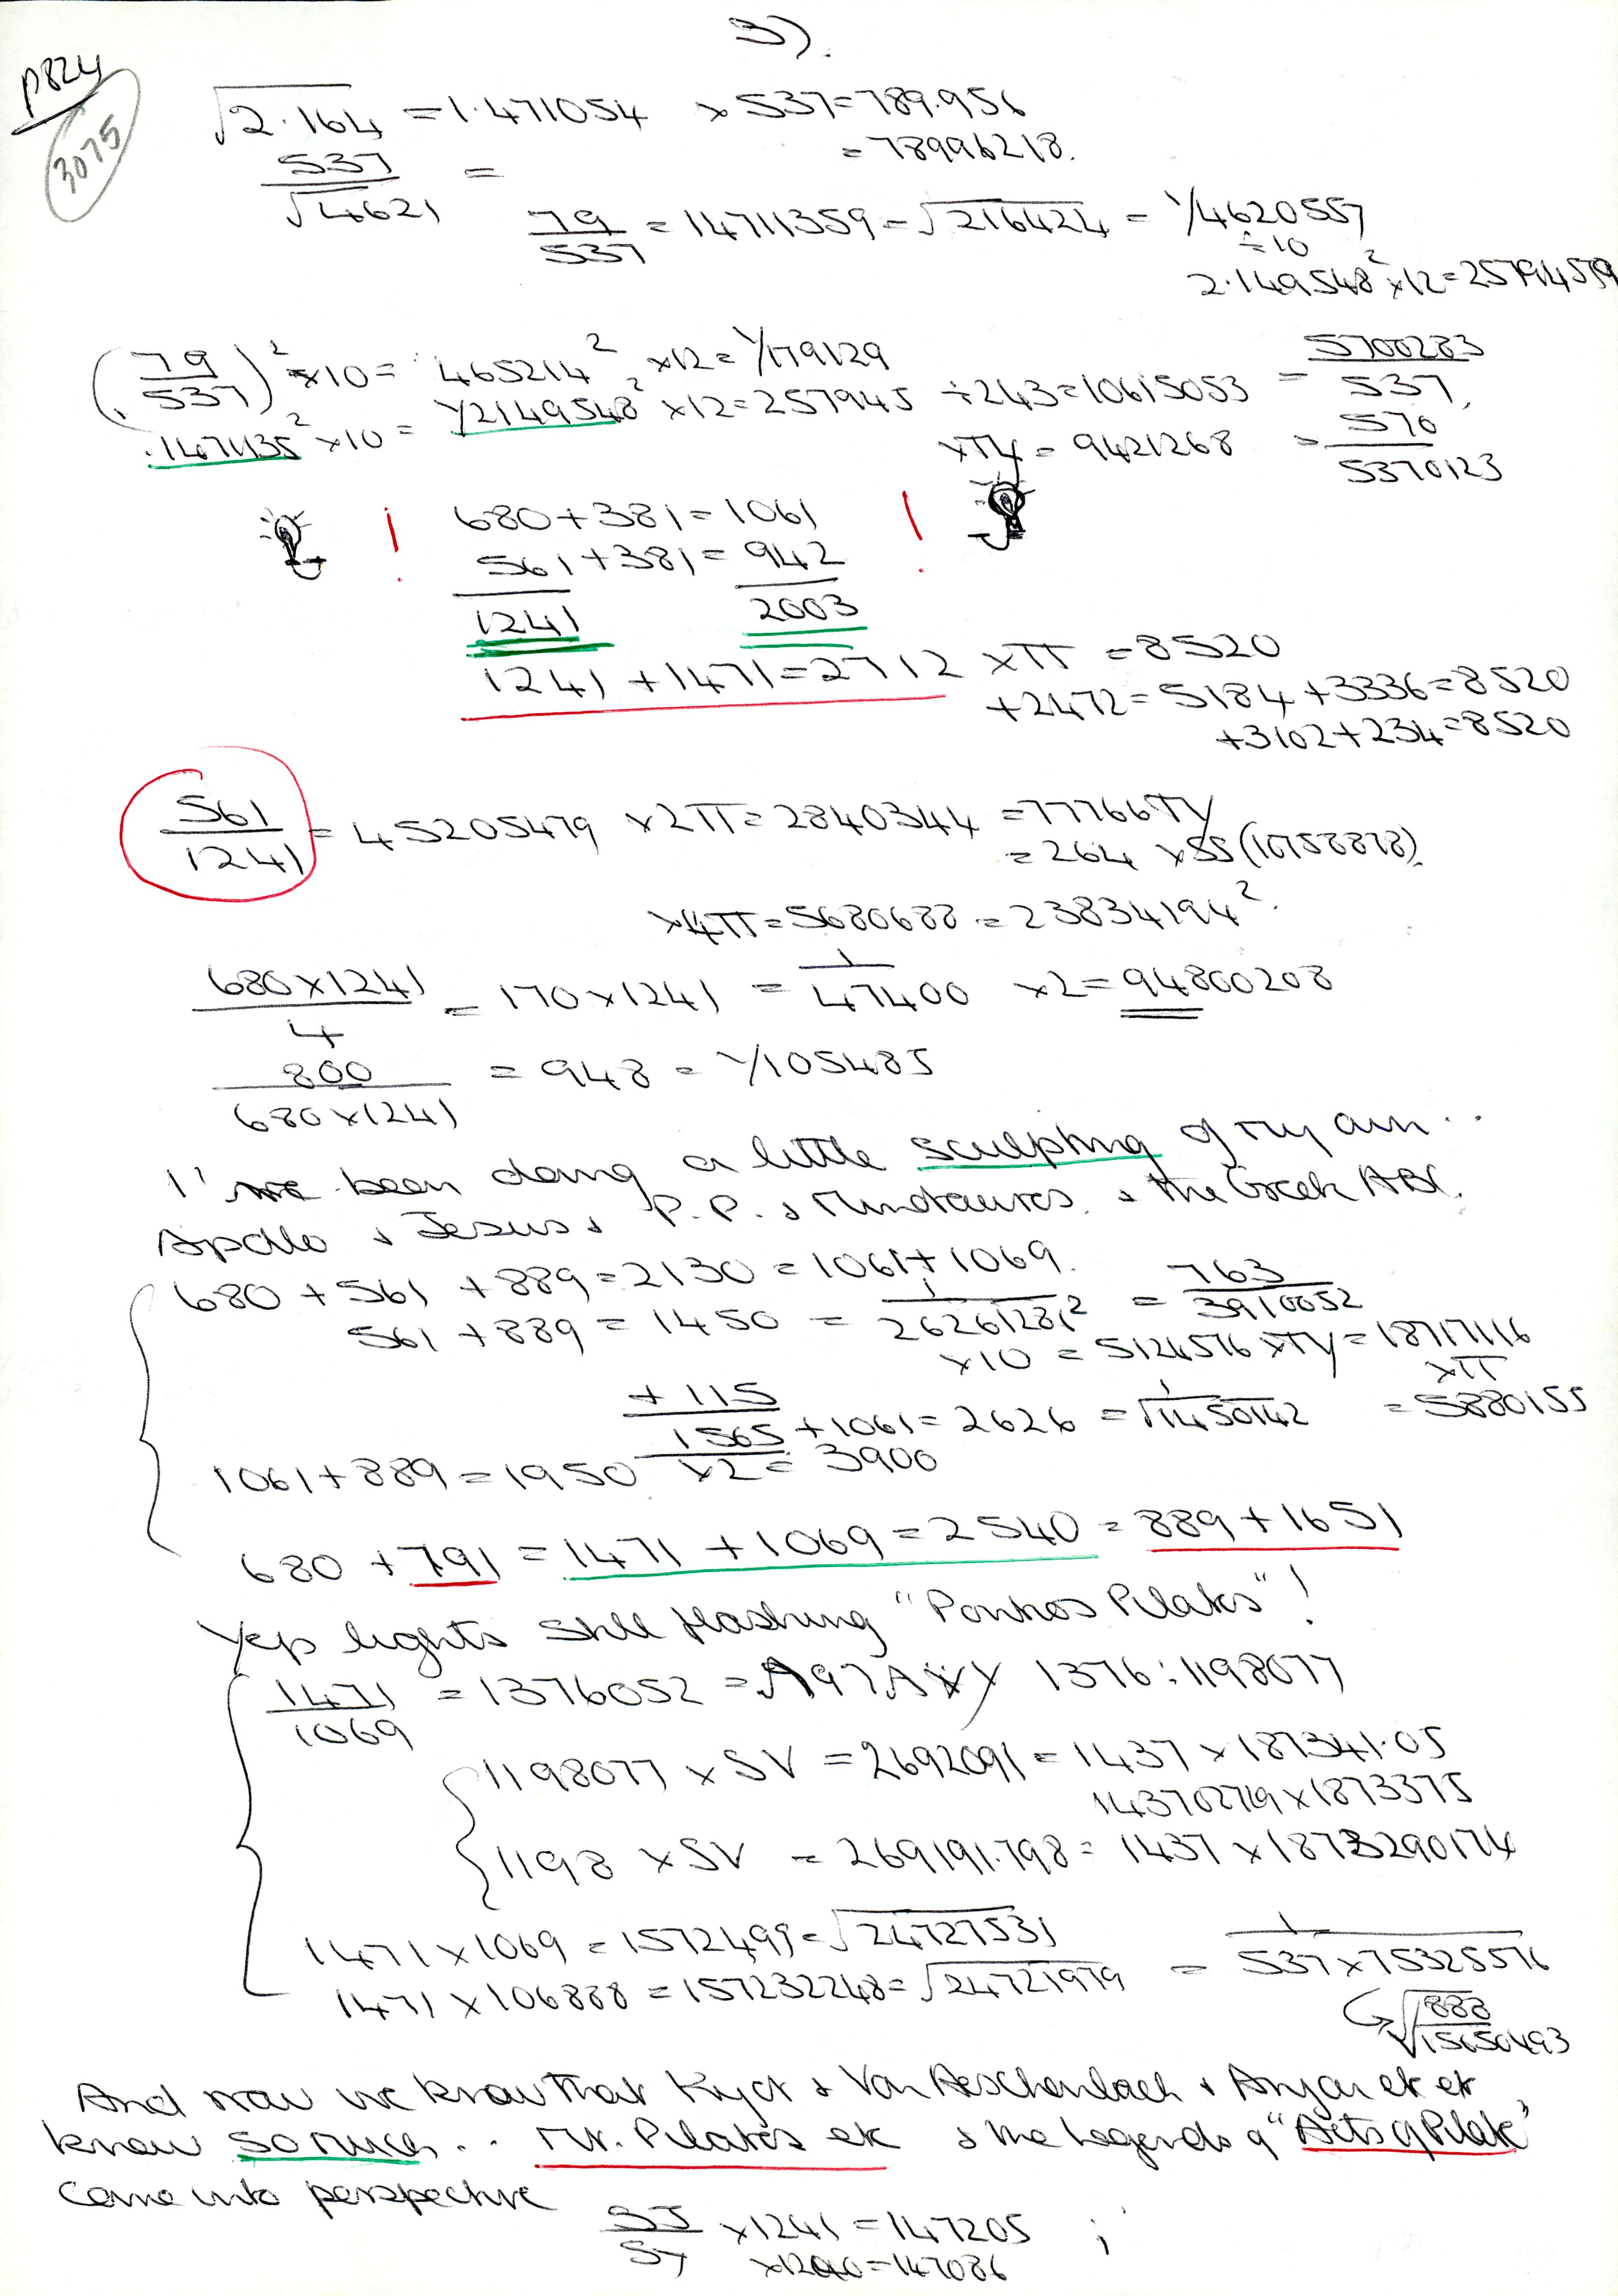 3).
P824
3075
√2.164 = 1.471054 × 537 = 789.956
537/√4621 = = 78996218.
79/537 = 14711359 = √216424 = 1/4620557
÷10
2.149548² × 12 = 25794579
(79/537)² × 10 = 465214² × 12 = 1/179129
.1471135² × 10 = 1/2149548² × 12 = 257945 ÷ 243 = 10615053 = 5700283/537
×TY = 9421268 = 570/5370123
! 680 + 381 = 1061 !
561 + 381 = 942
1241 2003
1241 + 1471 = 2712 × π = 8520
+ 2472 = 5184 + 3336 = 8520
+ 3102 + 234 = 8520
561/1241 = 45205479 × 2π = 2840344 = 77766TY
= 264 × SS (10758878).
× 4π = 5680688 = 23834194².
680 × 1241/4 = 170 × 1241 = 1/47400 × 2 = 94800208
800/680 × 1241 = 948 = 1/105485
I've been doing a little sculpting of my own ..
Apollo & Jesus & P.P. & Minotaures. & the Greek ABC.
680 + 561 + 889 = 2130 = 1061 + 1069.
561 + 889 = 1450 = 1/26261281² = 763/3910052
× 10 = 5124576 × TY = 18717116
× π
= 5880155
+ 115
1565 + 1061 = 2626 = 1/√1450142
1061 + 889 = 1950 × 2 = 3900
680 + 791 = 1471 + 1069 = 2540 = 889 + 1651
Yep lights still flashing "Pontios Pilates"!
1471/1069 = 1376052 = 1376 : 1198077
1198077 × SV = 2692091 = 1437 × 187341.05
14370279 × 1873375
1198 × SV = 269191.798 = 1437 × 1873290174
1471 × 1069 = 1572499 = √24727531
1471 × 106888 = 157232248 = √24721979 = 1/537 × 75325576
√888/15650493
And now we know that Kyot & Von Aeschenbach & Anjou et et
know so much .. Mr. Pilates etc & the legends of "Acts of Pilate"
come into perspective
SJ/SY × 1241 = 147205 ;
× 1240 = 147086